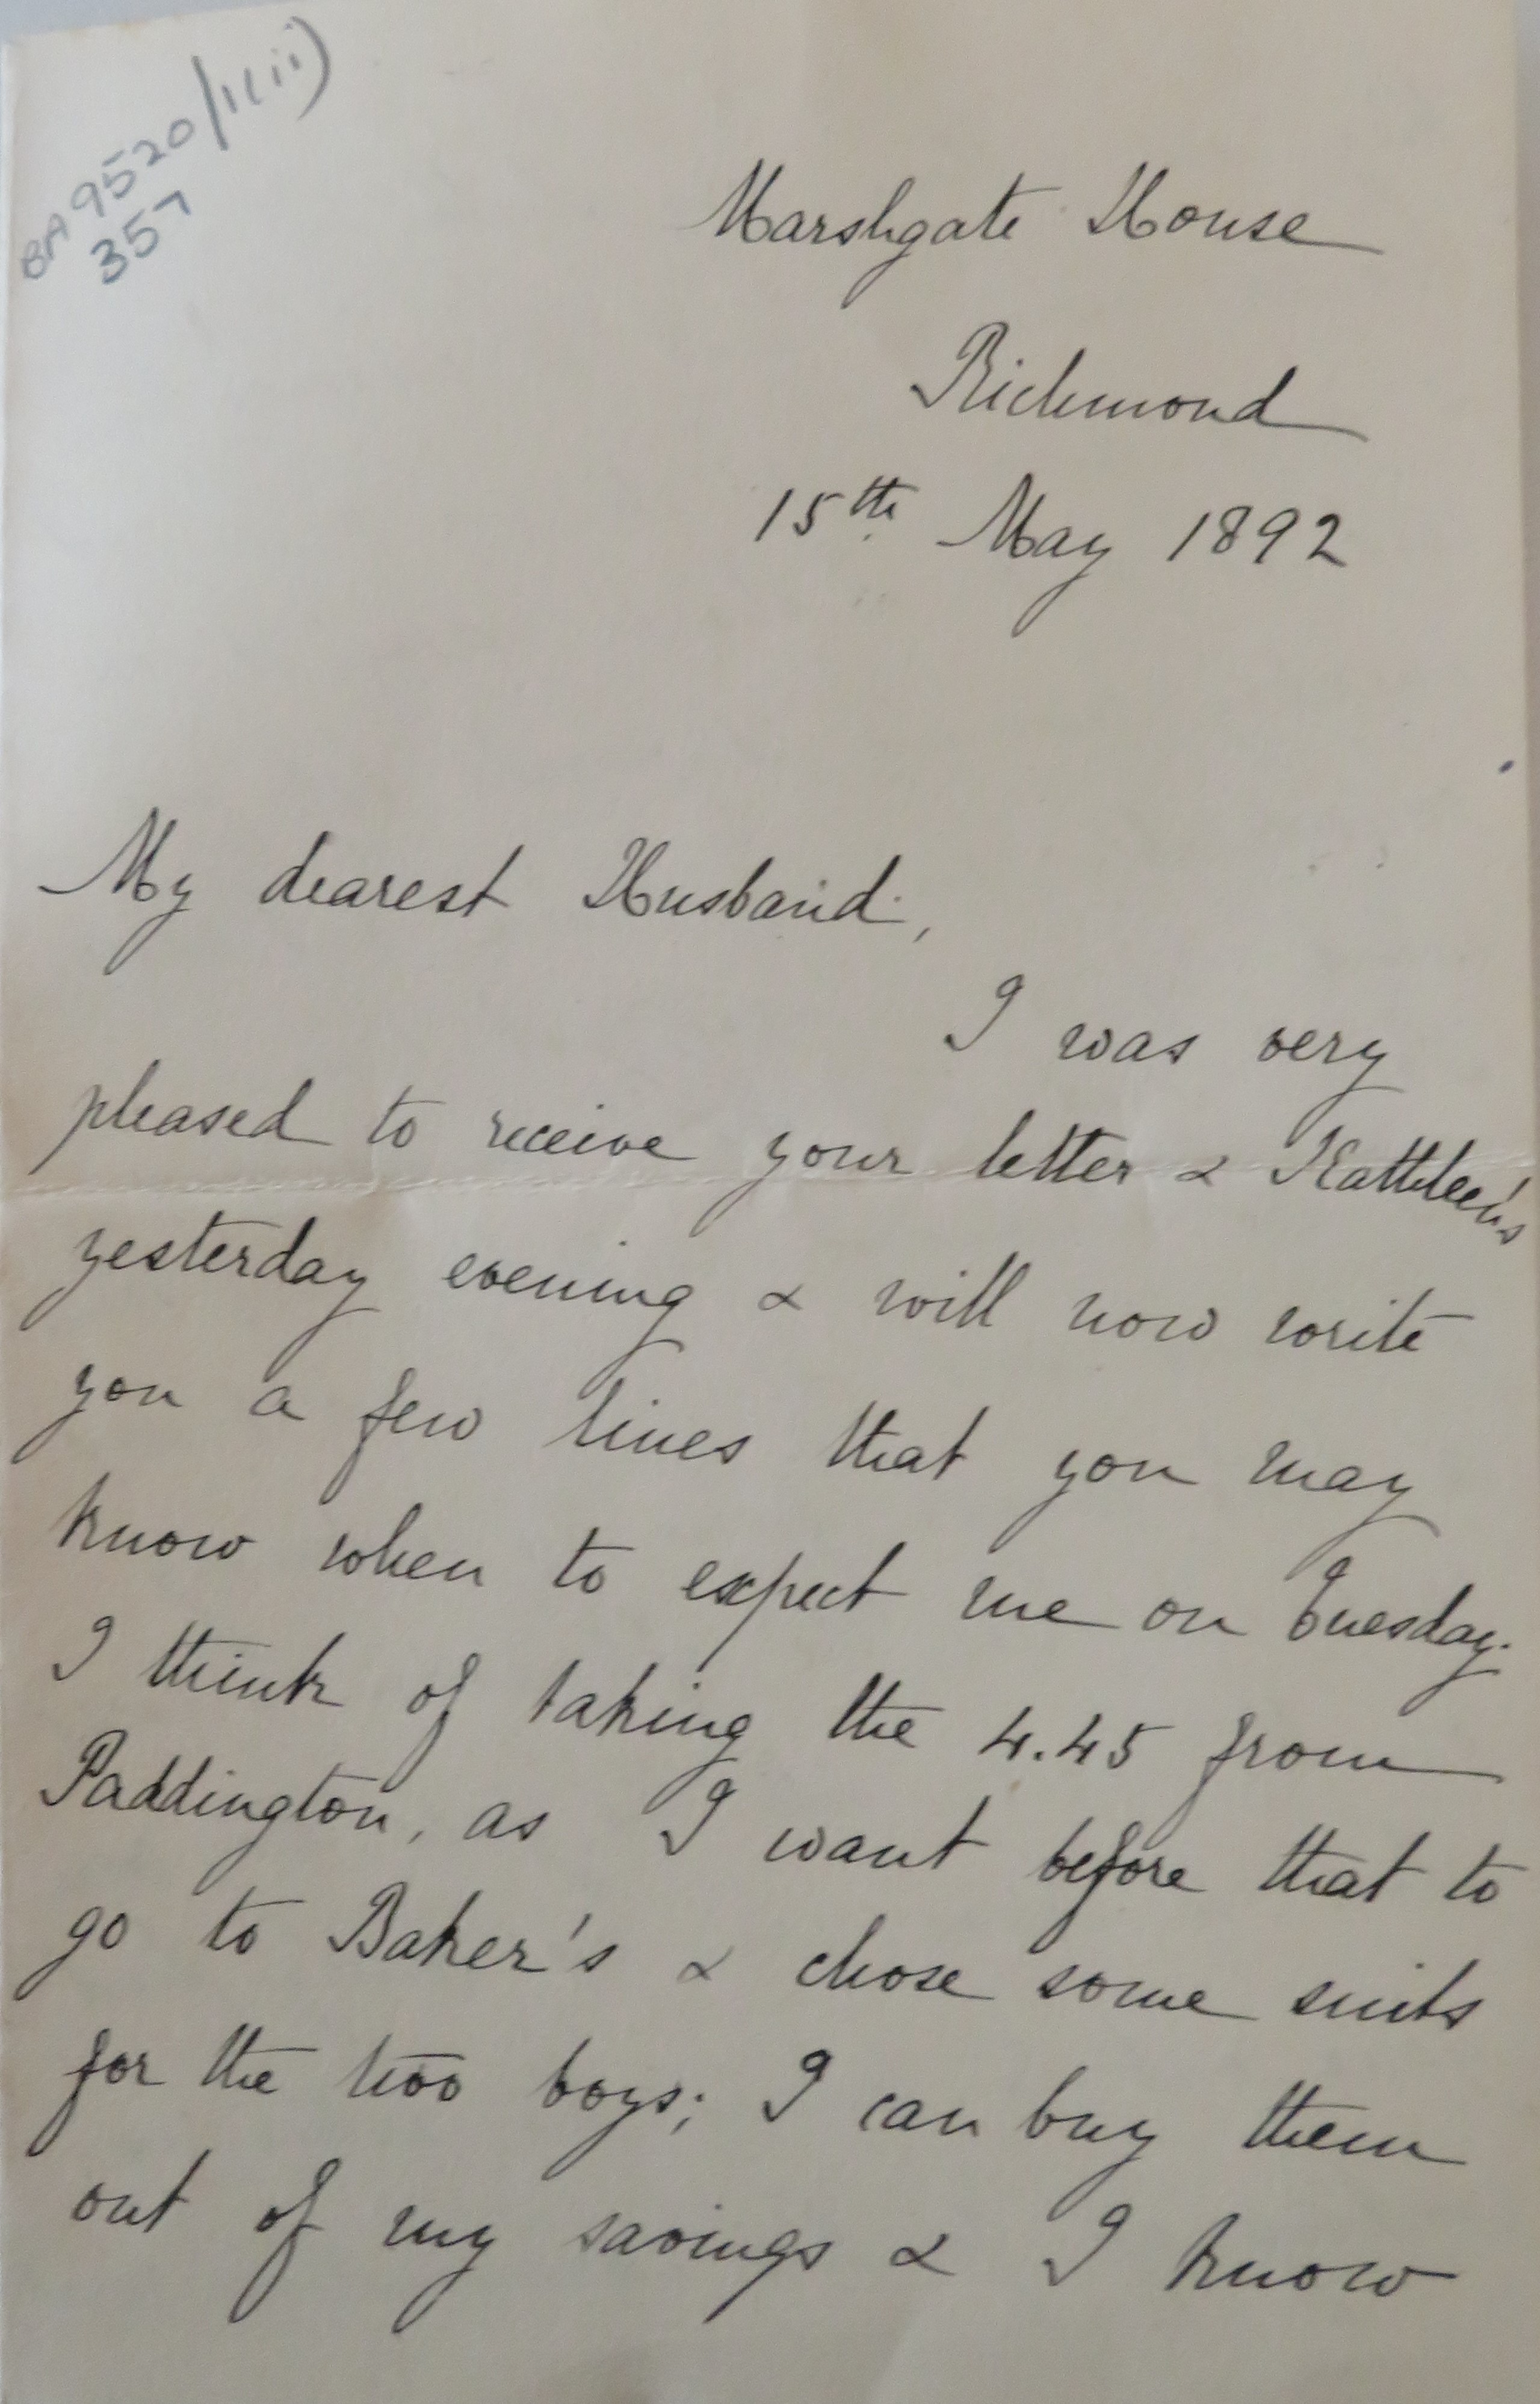 BA 9520/1(ii)
357
Marshgate House
Richmond
15th May 1892
My dearest Husband,
I was very
pleased to receive your letter & Kathleen's
yesterday evening & will now write
you a few lines that you may
know when to expect me on Tuesday.
I think of taking the 4.45 from
Paddington, as I want before that to
go to Baker's & chose some suits
for the two boys; I can buy them
out of my savings & I know